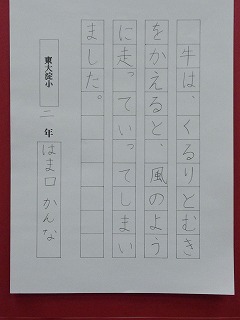 牛は、くるりとむき
をかえると、風のよう
に走っていってしまい
ました。
東大淀小 二年 はま口かんな